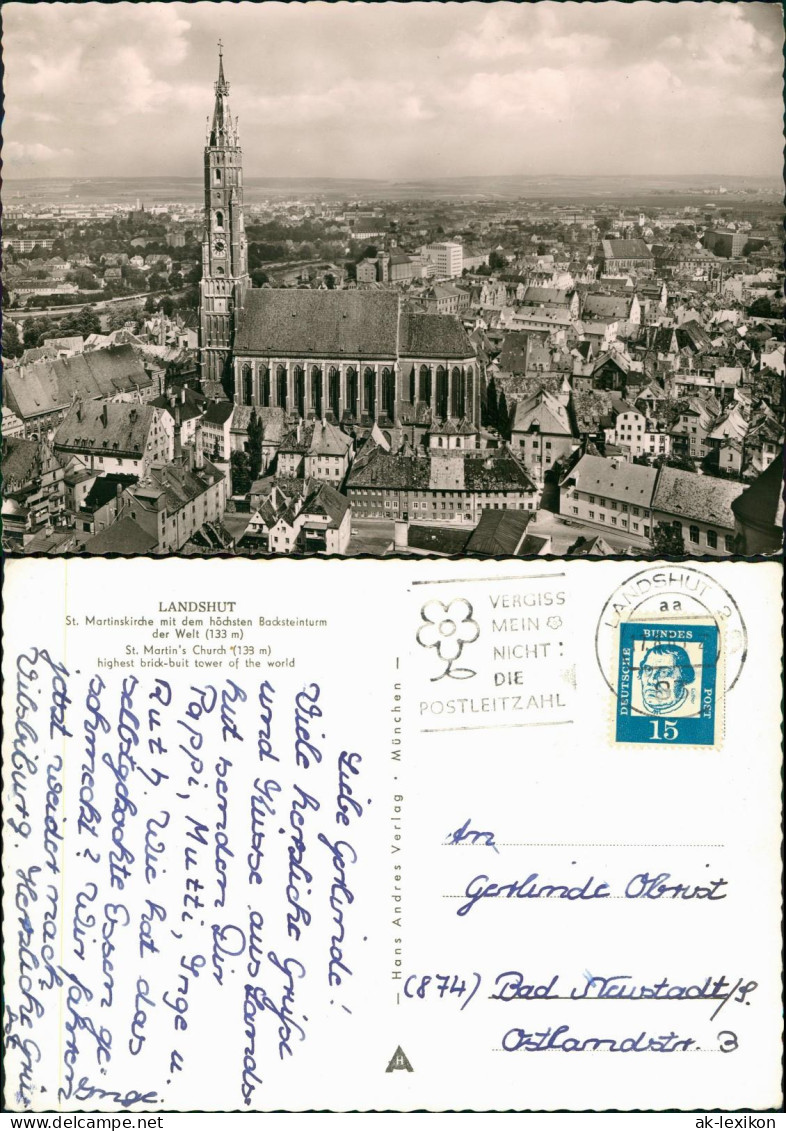 LANDSHUT
St. Martinskirche mit dem höchsten Backsteinturm
der Welt (133 m)
St. Martin's Church (133 m)
highest brick-buit tower of the world
Liebe Gerlinde!
Viele herzliche Grüße
und Küsse aus Lands-
hut senden Dir
Pappi, Mutti, Inge u.
Ruth. Wie hat das
selbstgekochte Essen ge-
schmeckt? Wir fahren
jetzt weider nach
Vilsbiburg. Herzliche Grü-
ße Inge.
Hans Andres Verlag · München
VERGISS
MEIN
NICHT:
DIE
POSTLEITZAHL
LANDSHUT 2
aa
DEUTSCHE
BUNDES
POST
15
An
Gerlinde Obrist
(874) Bad Neustadt/S.
Ostlandstr. 3
AH
www.ansichtskarten-lexikon.de
ak-lexikon